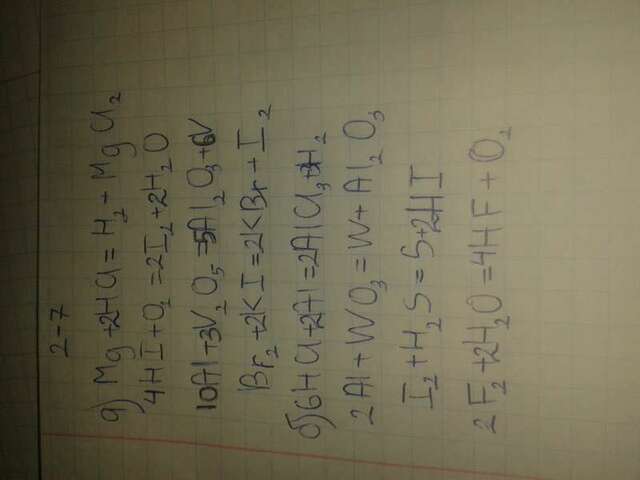 2-7
а) Mg+2HCl=H₂+MgCl₂
4HI+O₂=2I₂+2H₂O
10Al+3V₂O₅=5Al₂O₃+6V
Br₂+2KI=2KBr+I₂
б) 6HCl+2Al=2AlCl₃+3H₂
2Al+WO₃=W+Al₂O₃
I₂+H₂S=S+2HI
2F₂+2H₂O=4HF+O₂